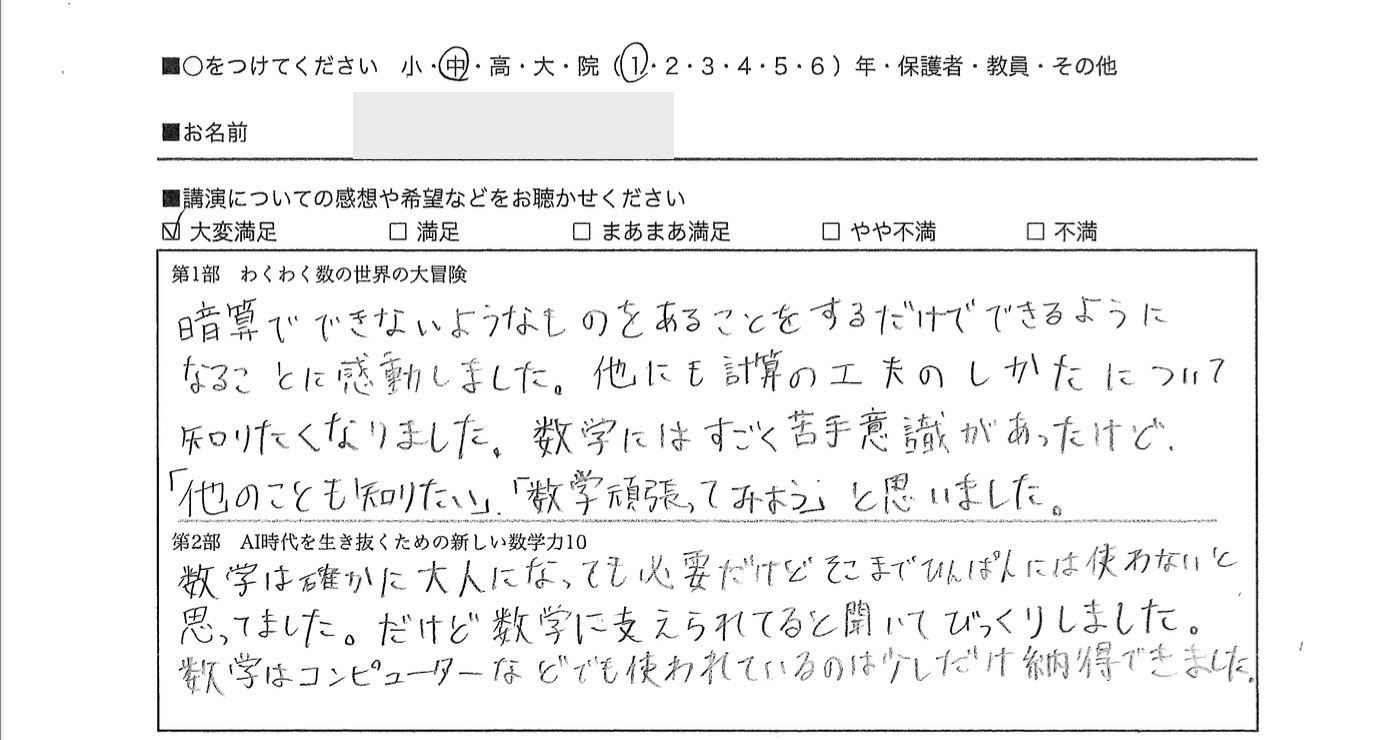 ■○をつけてください 小・中・高・大・院（1・2・3・4・5・6）年・保護者・教員・その他
■お名前
■講演についての感想や希望などをお聴かせください
☑ 大変満足 □ 満足 □ まあまあ満足 □ やや不満 □ 不満
第1部 わくわく数の世界の大冒険
暗算でできないようなものをあることをするだけでできるように
なることに感動しました。他にも計算の工夫のしかたについて
知りたくなりました。数学にはすごく苦手意識があったけど、
「他のことも知りたい」、「数学頑張ってみよう」と思いました。
第2部 AI時代を生き抜くための新しい数学力10
数学は確かに大人になっても必要だけどそこまでひんぱんには使わないと
思ってました。だけど数学に支えられてると聞いてびっくりしました。
数学はコンピューターなどでも使われているのは少しだけ納得できました。